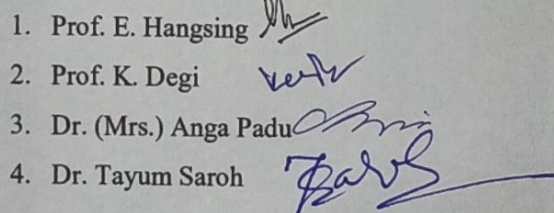 1. Prof. E. Hangsing
2. Prof. K. Degi
3. Dr. (Mrs.) Anga Padu
4. Dr. Tayum Saroh